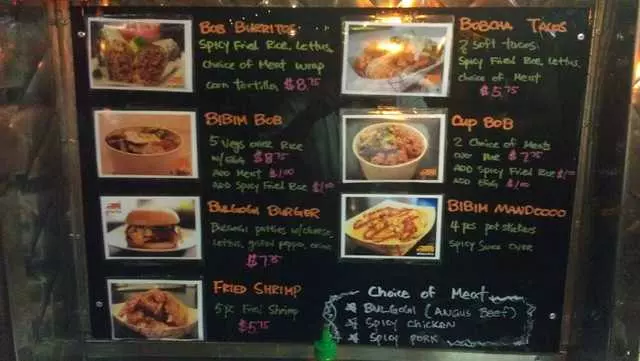 BOB BURRITOS
Spicy Fried Rice, Lettus,
Choice of Meat wrap
corn tortillas $8.75
BOBCHA TACOS
2 Soft tacos
Spicy Fried Rice, Lettus,
choice of Meat
$5.75
BIBIM BOB
5 Vegs over Rice
w/EGG $8.75
ADD Meat $1.00
ADD Spicy Fried Rice $1.00
CUP BOB
2 Choice of Meats
over Rice $7.75
ADD Spicy Fried Rice $1.00
ADD EGG $1.00
BULGOGI BURGER
Bulgogi patties w/cheese,
Lettus, grilled pepper, onion
$7.75
BIBIM MANDOOOO
4 pcs pot stickers
Spicy Sauce over
FRIED SHRIMP
5 pc Fried Shrimp
$5.75
Choice of Meat
BULGOGI (ANGUS BEEF)
SPICY CHICKEN
SPICY PORK